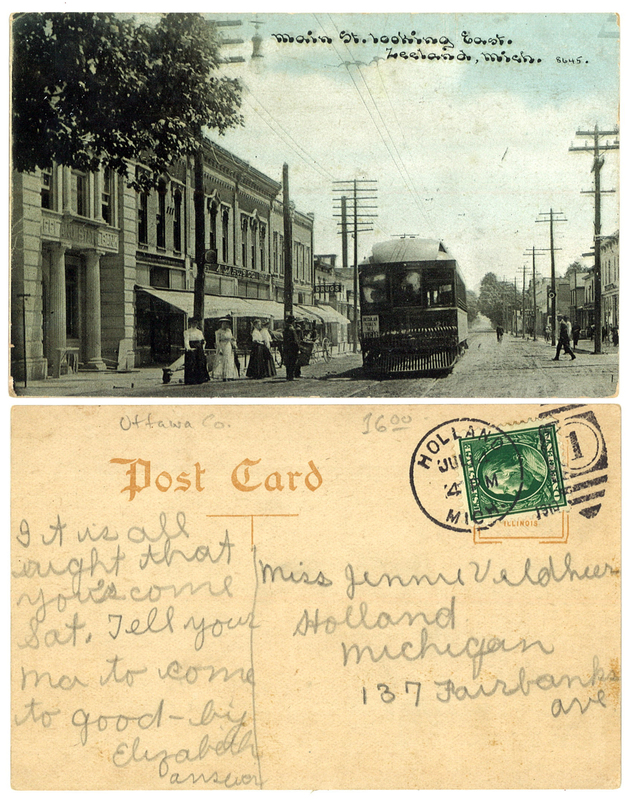 Main St. looking East.
Zeeland, Mich. 8645.
Ottawa Co.
1600
Post Card
HOLLAND
MICH
1
ILLINOIS
It is all
right that
you's come
Sat. Tell your
ma to come
to good-by
Elizabeth
answer
Miss Jennie Veldheer
Holland
Michigan
137 Fairbanks
ave